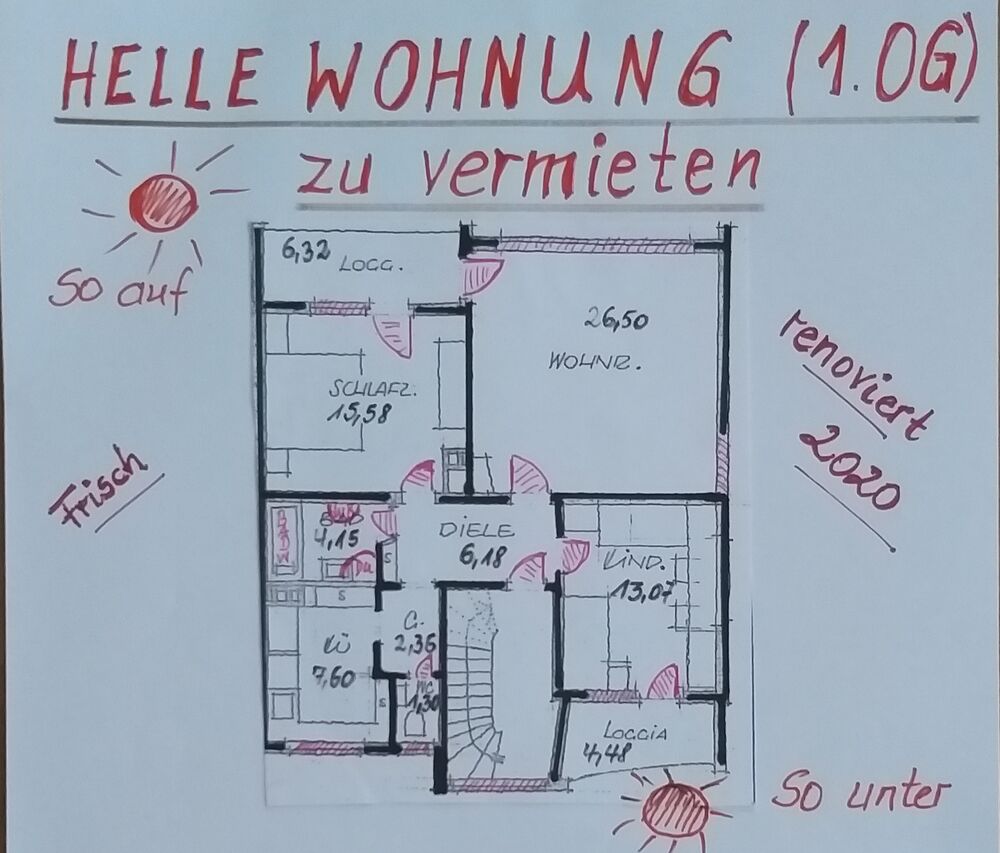 HELLE WOHNUNG (1.OG)
zu vermieten
So auf
6,32 LOGG.
26,50
WOHNZ.
SCHLAFZ.
15,58
renoviert
2020
Frisch
BADW
BAD
4,15
Du
S
DIELE
6,18
KIND.
13,07
S
G.
2,36
KÜ
7,60
WC
1,30
S
LOGGIA
4,48
So unter